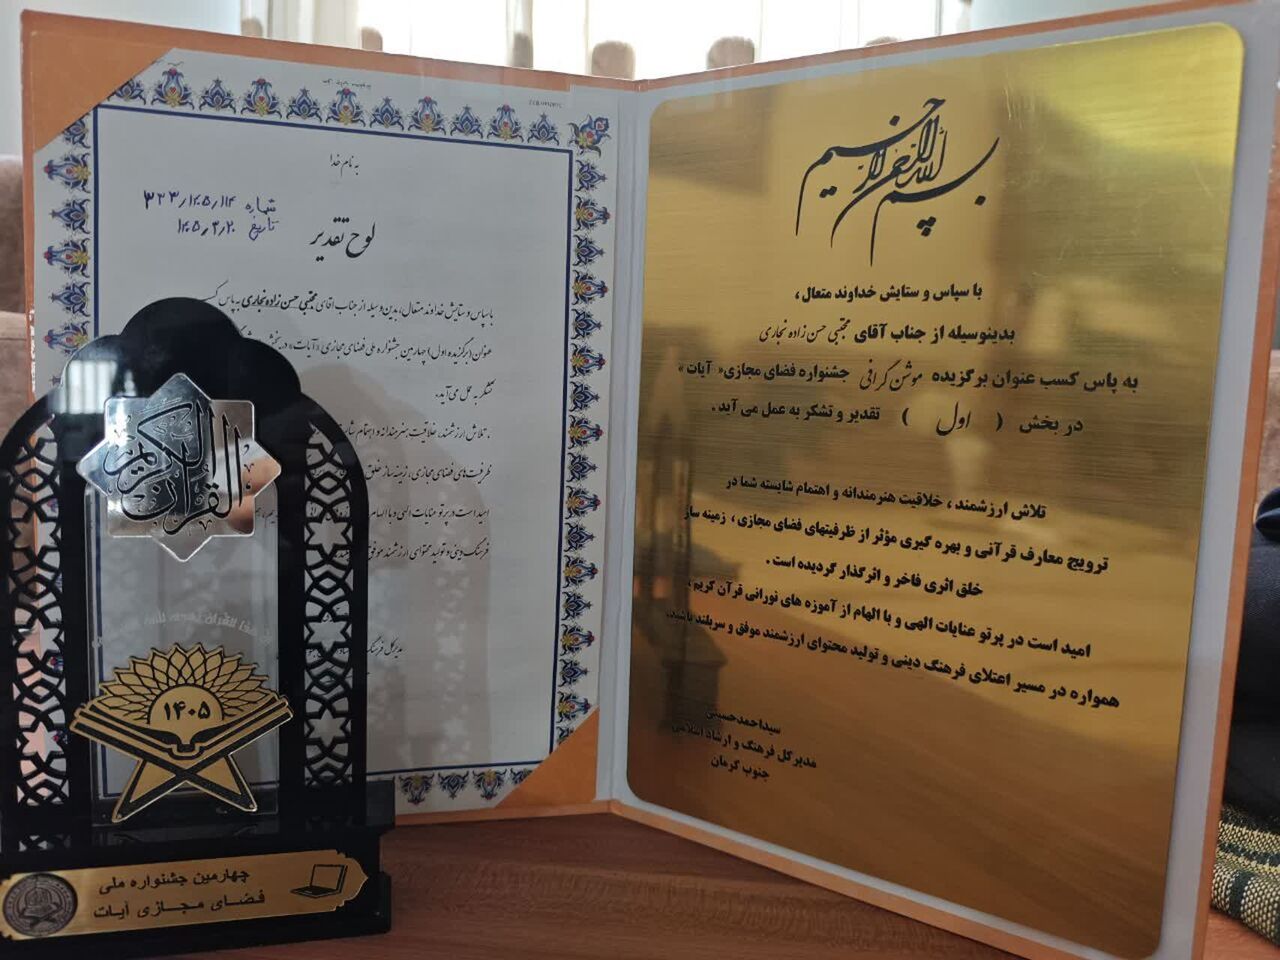 به نام خدا
شماره ۳۲۳/۱۴۰۵/۱۱۴
تاریخ ۱۴۰۵/۳/۲۰
لوح تقدیر
با سپاس و ستایش خداوند متعال، بدین وسیله از جناب آقای مجتبی حسن زاده نجاری به پاس
عنوان (برگزیده اول) چهارمین جشنواره ملی فضای مجازی «آیات» در بخش
تشکر به عمل می‌آید.
تلاش ارزشمند، خلاقیت هنرمندانه و اهتمام
ظرفیت‌های فضای مجازی، زمینه ساز خلق
امید است در پرتو عنایات الهی و با الهام
فرهنگ دینی و تولید محتوای ارزشمند موفق
مدیرکل
القرآن الکریم
۱۴۰۵
چهارمین جشنواره ملی
فضای مجازی آیات
بسم الله الرحمن الرحیم
با سپاس و ستایش خداوند متعال ،
بدینوسیله از جناب آقای مجتبی حسن زاده نجاری
به پاس کسب عنوان برگزیده موشن گرافی جشنواره فضای مجازی« آیات »
در بخش ( اول ) تقدیر و تشکر به عمل می آید .
تلاش ارزشمند ، خلاقیت هنرمندانه و اهتمام شایسته شما در
ترویج معارف قرآنی و بهره گیری مؤثر از ظرفیتهای فضای مجازی ، زمینه ساز
خلق اثری فاخر و اثرگذار گردیده است .
امید است در پرتو عنایات الهی و با الهام از آموزه های نورانی قرآن کریم ،
همواره در مسیر اعتلای فرهنگ دینی و تولید محتوای ارزشمند موفق و سربلند باشید.
سیداحمدحسینی
مدیرکل فرهنگ و ارشاد اسلامی
جنوب کرمان